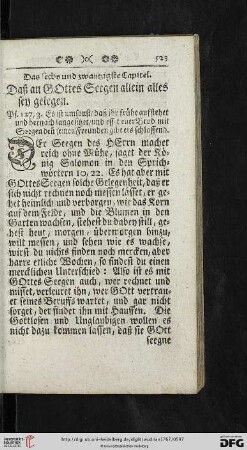 523
Das sechs und zwantzigste Capitel.
Daß an GOttes Seegen allein alles
sey gelegen.
Ps. 127, 3. Es ist umsonst, daß ihr frühe aufstehet
und hernach lange sitzet, und esset euer Brod mit
Sorgen, denn seinen Freunden gibt ers schlaffend.
Der Seegen des HErrn machet
reich ohne Mühe, saget der Kö-
nig Salomon in den Sprich-
wörtern 10, 22. Es hat aber mit
GOttes Seegen solche Gelegenheit, daß er
sich nicht rechnen noch messen lasset, er ge-
het heimlich und verborgen, wie das Korn
auf dem Felde, und die Blumen in den
Garten wachsen, stehest du dabey still, ge-
hest heut, morgen, übermorgen hinzu,
wilt messen, und sehen wie es wachse,
wirst du nichts finden noch mercken, aber
harre etliche Wochen, so findest du einen
mercklichen Unterschied: Also ist es mit
GOttes Seegen auch, wer rechnet und
misset, verleuret ihn, wer GOtt vertrau-
et seines Beruffs wartet, und gar nicht
sorget, der findet ihn mit Hauffen. Die
Gottlosen und Unglaubigen wollen es
nicht dazu kommen lassen, daß sie GOtt
seegne